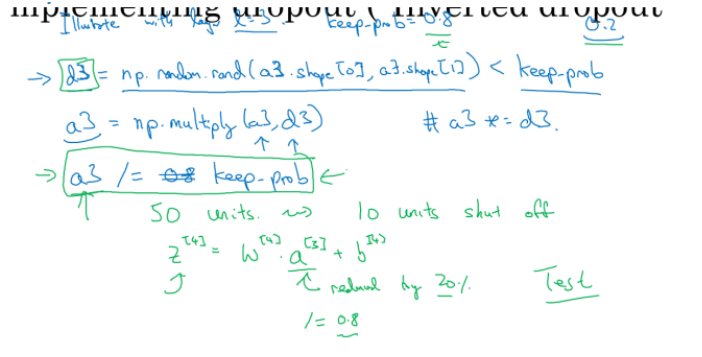 Implementing dropout ("Inverted dropout
Illustrate with layer l=3. keep-prob = 0.8 0.2
→ d3 = np.random.rand(a3.shape[0], a3.shape[1]) < keep-prob
a3 = np.multiply(a3, d3) # a3 *= d3.
→ a3 /= 0.8 keep-prob ←
50 units. ⇝ 10 units shut off
z^[4] = W^[4] · a^[3] + b^[4]
reduced by 20%. Test
/= 0.8